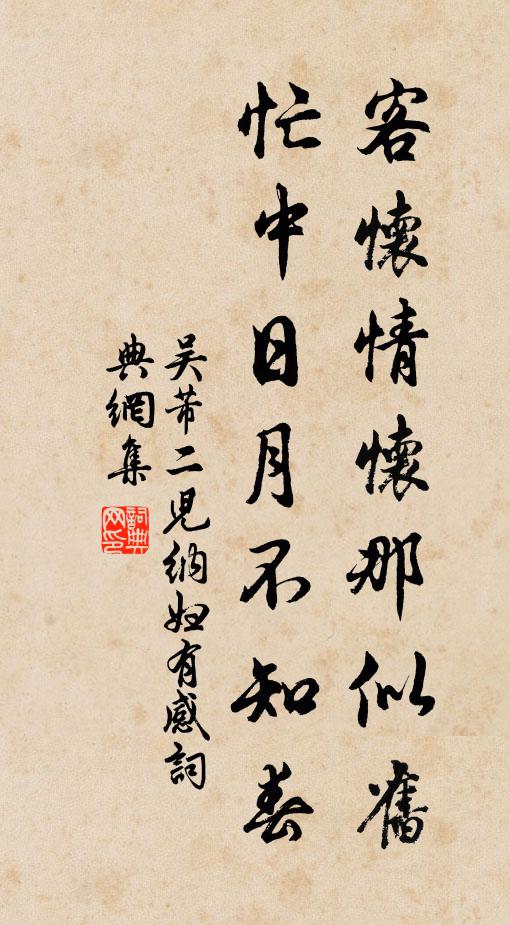 客懷情懷那似舊
忙中日月不知春
吳芾二児納妞有感詞
典網集
詞典
网印